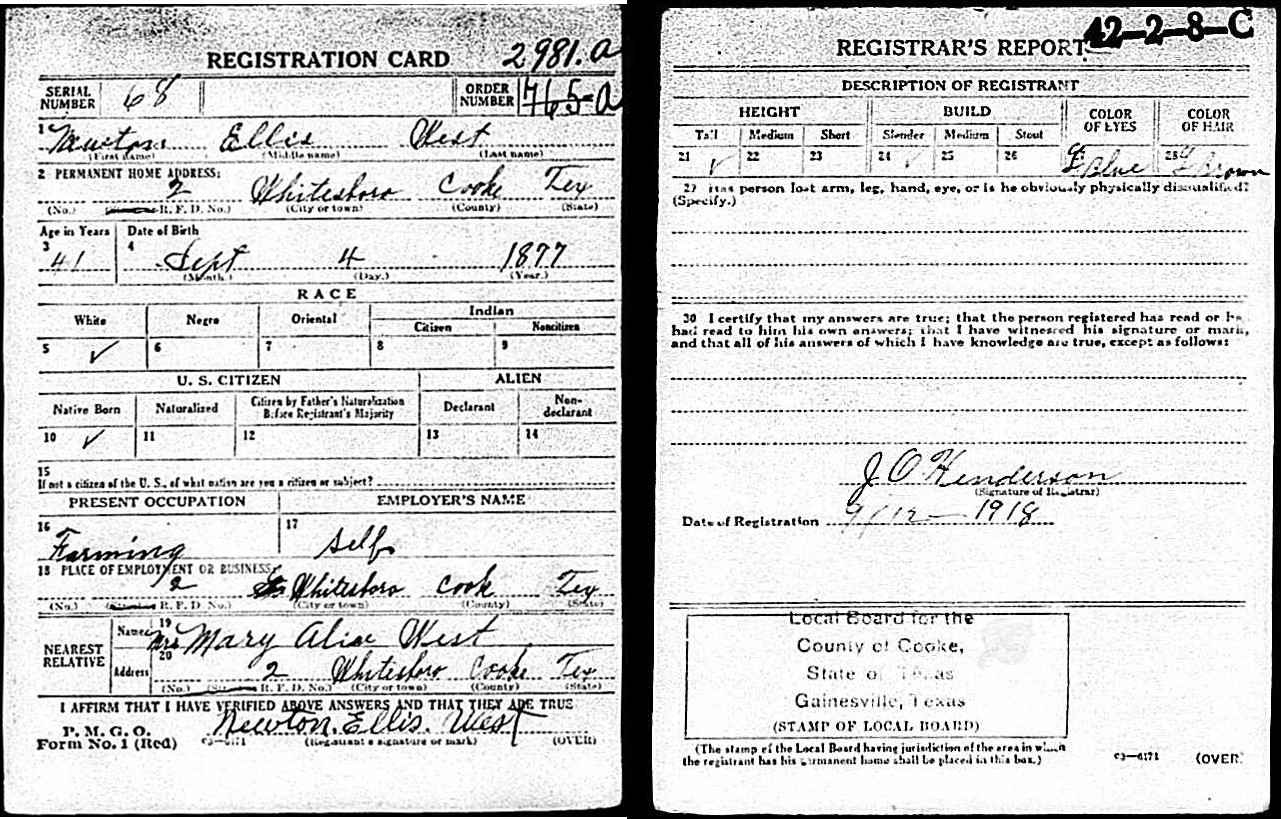 REGISTRATION CARD 2981.a
SERIAL NUMBER 68 ORDER NUMBER 765-a
1 Newton Ellis West
(First name) (Middle name) (Last name)
2 PERMANENT HOME ADDRESS:
2 Whitesboro Cooke Tex
(No.) R. F. D. No.) (City or town) (County) (State)
Age in Years Date of Birth
3 41 4 Sept 4 1877
(Month.) (Day.) (Year.)
RACE
White Negro Oriental Indian
Citizen Noncitizen
5 ✓ 6 7 8 9
U. S. CITIZEN ALIEN
Native Born Naturalized Citizen by Father's Naturalization Before Registrant's Majority Declarant Non-declarant
10 ✓ 11 12 13 14
15
If not a citizen of the U. S., of what nation are you a citizen or subject?
PRESENT OCCUPATION EMPLOYER'S NAME
16 Farming 17 Self
18 PLACE OF EMPLOYMENT OR BUSINESS:
2 Whitesboro Cook Tex
(No.) R. F. D. No.) (City or town) (County) (State)
NEAREST RELATIVE Name 19 Mrs Mary Alice West
Address 20 2 Whitesboro Cooke Tex
(No.) R. F. D. No.) (City or town) (County) (State)
I AFFIRM THAT I HAVE VERIFIED ABOVE ANSWERS AND THAT THEY ARE TRUE
P. M. G. O.
Form No. 1 (Red) Newton. Ellis. West
c3—6171 (Registrant's signature or mark) (OVER)
42-2-8-C
REGISTRAR'S REPORT
DESCRIPTION OF REGISTRANT
HEIGHT BUILD COLOR OF EYES COLOR OF HAIR
Tall Medium Short Slender Medium Stout
21 ✓ 22 23 24 ✓ 25 26 27 Blue 28 Brown
29 Has person lost arm, leg, hand, eye, or is he obviously physically disqualified?
(Specify.)
30 I certify that my answers are true; that the person registered has read or has
had read to him his own answers; that I have witnessed his signature or mark,
and that all of his answers of which I have knowledge are true, except as follows:
J O Henderson
(Signature of Registrar)
Date of Registration 9/12— 1918
Local Board for the
County of Cooke,
State of Texas
Gainesville, Texas
(STAMP OF LOCAL BOARD)
(The stamp of the Local Board having jurisdiction of the area in which
the registrant has his permanent home shall be placed in this box.)
c3—6171 (OVER)